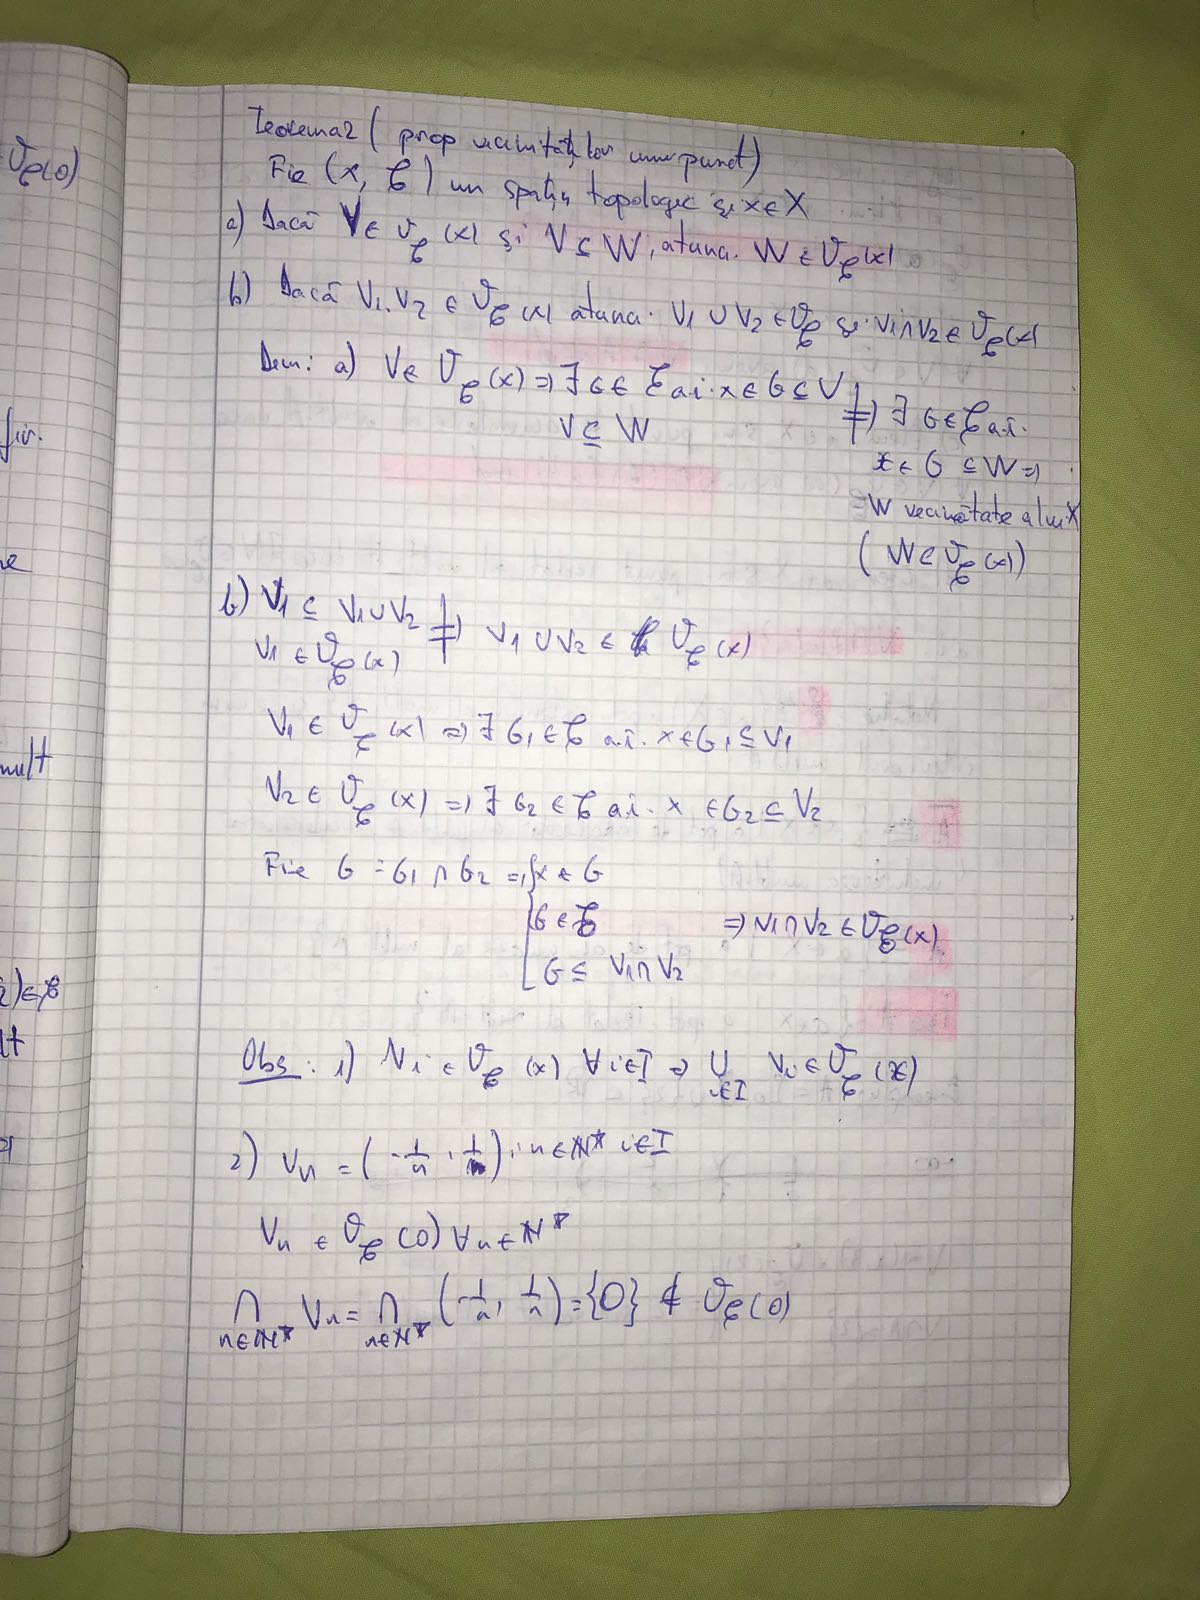 Teorema 2 ( prop vecinătăților unui punct)
Fie (X, 𝒯) un spațiu topologic și x∈X
a) Dacă V∈ 𝒱_𝒯(x) și V⊆W, atunci W∈𝒱_𝒯(x)
b) Dacă V1, V2 ∈ 𝒱_𝒯(x) atunci V1 ∪ V2 ∈ 𝒱_𝒯 și V1∩V2 ∈ 𝒱_𝒯(x)
Dem: a) V∈ 𝒱_𝒯(x) ⇒ ∃ G∈ 𝒯 a.î. x∈G⊆V | ⇒ ∃ G∈𝒯 a.î.
V⊆W
x∈ G ⊆W ⇒
⇒ W vecinătate a lui X
( W∈𝒱_𝒯(x))
b) V1 ⊆ V1∪V2 | ⇒ V1 ∪V2 ∈ 𝒱_𝒯(x)
V1 ∈𝒱_𝒯(x)
V1 ∈ 𝒱_𝒯(x) ⇒ ∃ G1∈𝒯 a.î. x∈G1⊆V1
V2 ∈ 𝒱_𝒯(x) ⇒ ∃ G2∈𝒯 a.î. x ∈G2⊆V2
Fie G = G1 ∩ G2 ⇒ { x∈G
G∈𝒯 ⇒ V1∩V2 ∈𝒱_𝒯(x)
G⊆ V1∩V2
Obs: 1) Vi ∈ 𝒱_𝒯(x) ∀i∈I ⇒ ∪ i∈I Vi ∈ 𝒱_𝒯(x)
2) Vn = (-1/n, 1/n), n∈ℕ* i∈I
Vn ∈ 𝒱_𝒯(0) ∀n∈ℕ*
∩ n∈ℕ* Vn = ∩ n∈ℕ* (-1/n, 1/n) = {0} ∉ 𝒱_𝒯(0)
𝒱_𝒯(0)
mult
)∈𝒯